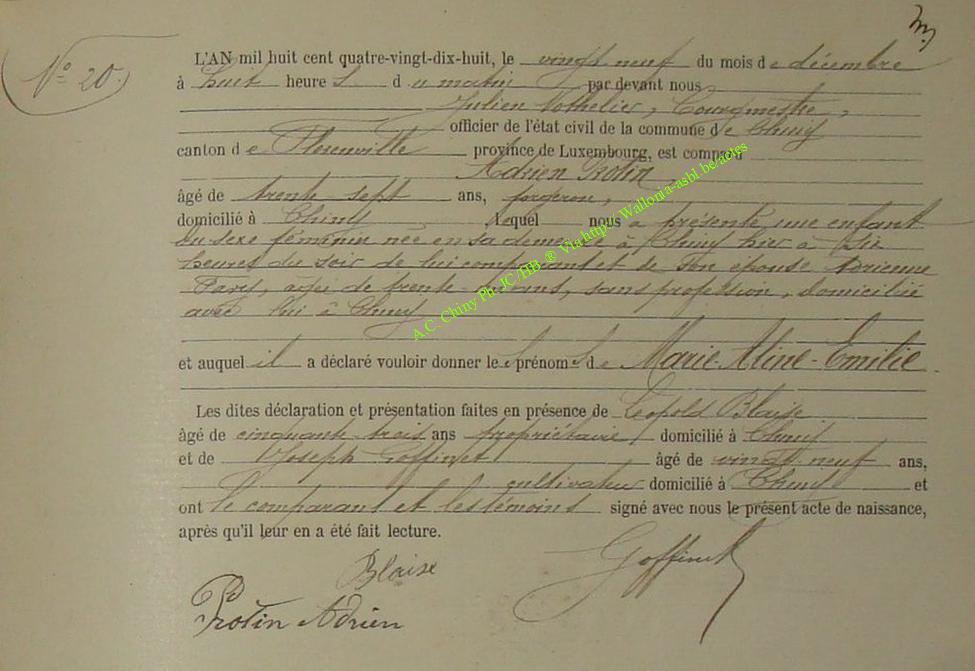 N° 20.
L'AN mil huit cent quatre-vingt-dix-huit, le vingt neuf du mois de décembre
à huit heures du matin par devant nous
Julien Nothelier, bourgmestre,
officier de l'état civil de la commune de Chiny
canton de Florenville province de Luxembourg, est comparu
Adrien Protin
âgé de trente sept ans, forgeron,
domicilié à Chiny lequel nous a présenté une enfant
du sexe féminin née en sa demeure à Chiny hier à dix
heures du soir de lui comparant et de son épouse Adrienne
âgée de trente ans, sans profession, domiciliée
avec lui à Chiny
et auquel il a déclaré vouloir donner les prénoms de Marie-Aline-Emilie
Les dites déclaration et présentation faites en présence de Léopold Blaise
âgé de cinquante trois ans propriétaire domicilié à Chiny
et de Joseph Goffinet âgé de vingt neuf ans,
cultivateur domicilié à Chiny et
ont le comparant et les témoins signé avec nous le présent acte de naissance,
après qu'il leur en a été fait lecture.
Blaise
Goffinet
Protin Adrien
A.C. Chiny Ph JC/HB ® Via http://Wallonia-asbl.be/actes